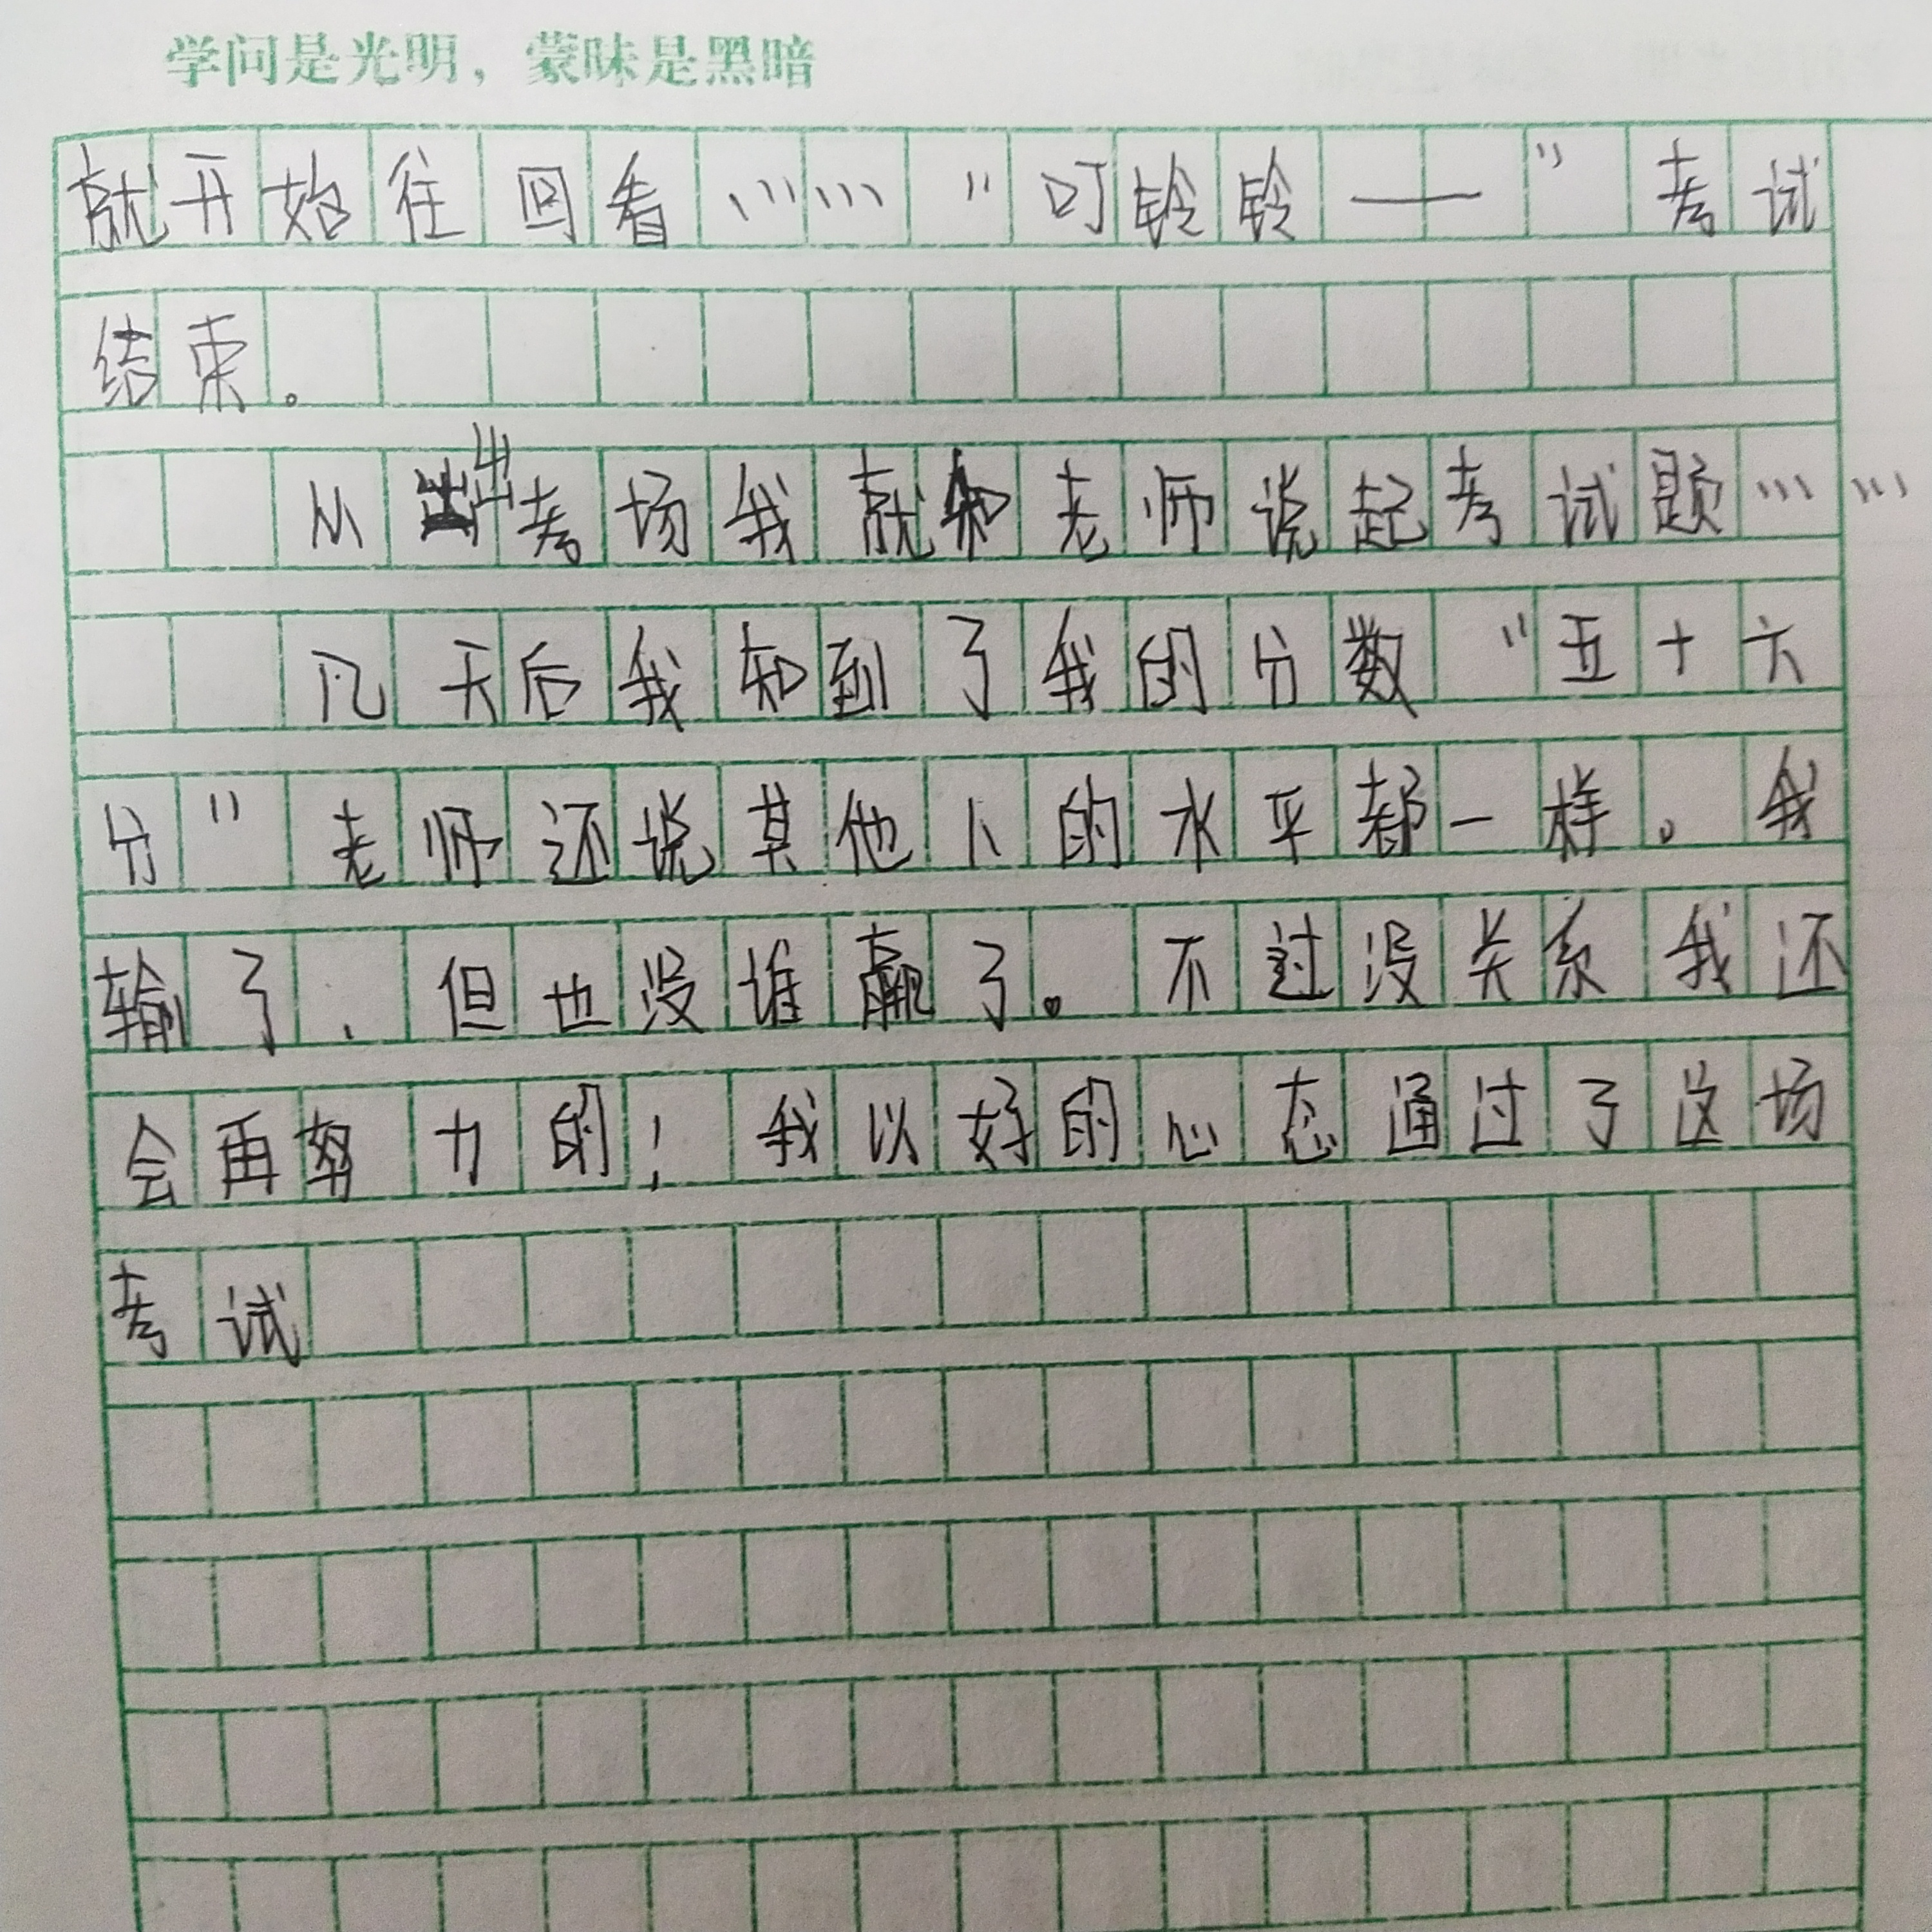 学问是光明，蒙昧是黑暗
就开始往回看……“叮铃铃——”考试
结束。
从出考场我就和老师说起考试题……
几天后我知到了我的分数“五十六
分”老师还说其他人的水平都一样。我
输了、但也没谁赢了。不过没关系我还
会再努力的！我以好的心态通过了这场
考试